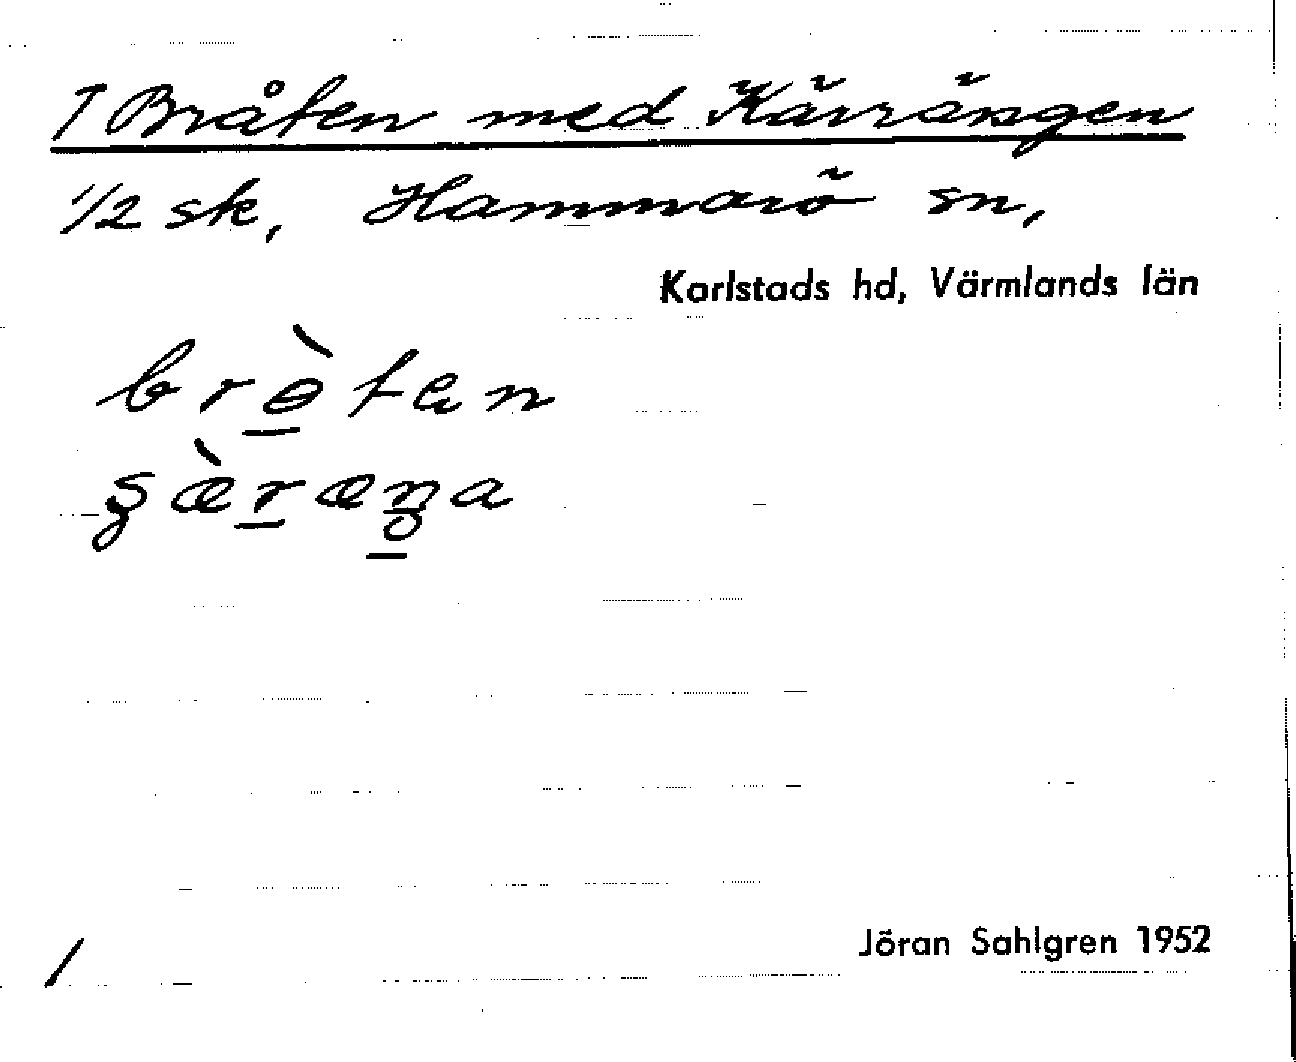 T Bråten med Kärrängen
1/2 sk, Hammarö sn,
Karlstads hd, Värmlands län
brètan
Jöran Sahlgren 1952
/